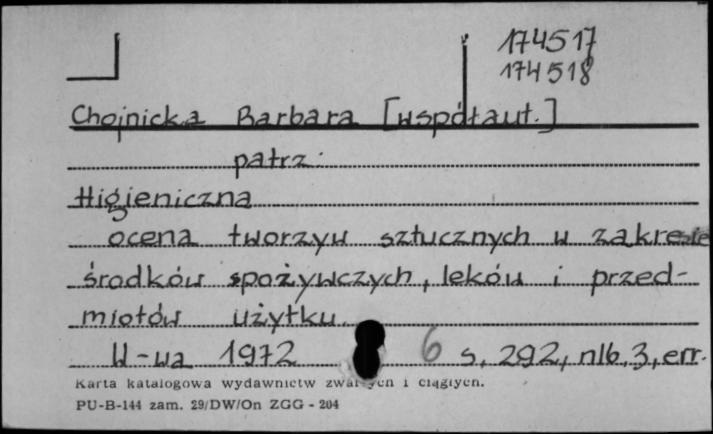 174517
174518
Chojnicka Barbara [współaut.]
patrz:
Higieniczna
ocena tworzyw sztucznych w zakresie
środków spożywczych, leków i przed-
miotów użytku.
W-wa 1972 6 s. 292, nlb. 3, err.
Karta katalogowa wydawnictw zwartych i ciągłych.
PU-B-144 zam. 29/DW/On ZGG - 204